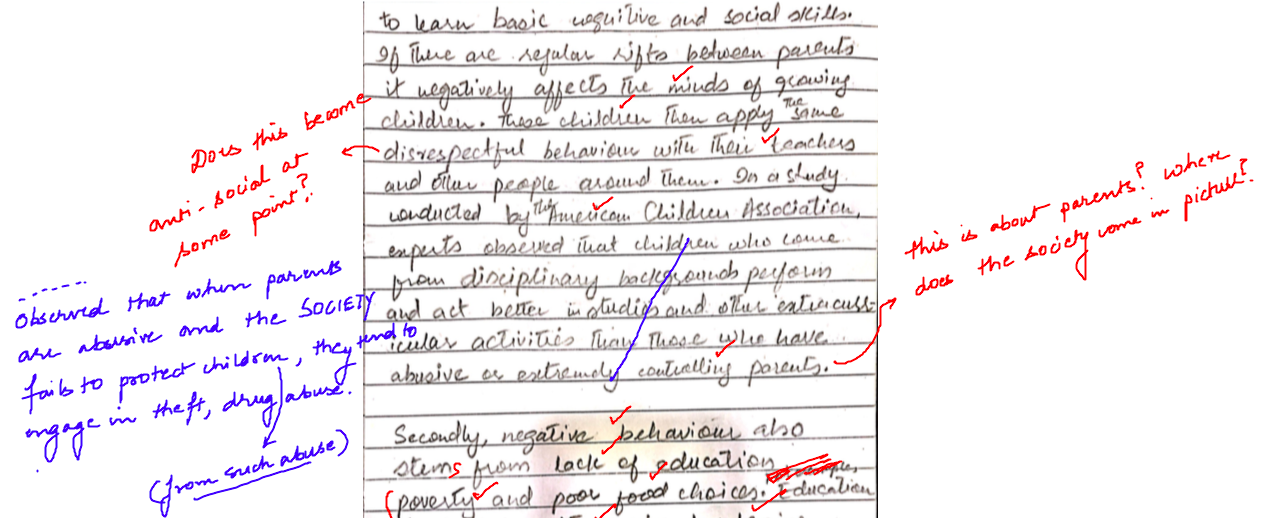 to learn basic cognitive and social skills.
If there are regular rifts between parents
it negatively affects the minds of growing
children. These children then apply the same
disrespectful behaviour with their teachers
and other people around them. In a study
conducted by the American Children Association,
experts observed that children who come
from disciplinary backgrounds perform
and act better in studies and other extracurr-
icular activities than those who have
abusive or extremely controlling parents.
Secondly, negative behaviour also
stems from lack of education
(poverty and poor food choices. Education
Does this become
anti-social at
some point?
Observed that when parents
are abusive and the SOCIETY
fails to protect children, they tend to
engage in theft, drug abuse.
(from such abuse)
this is about parents? where
does the society come in picture?